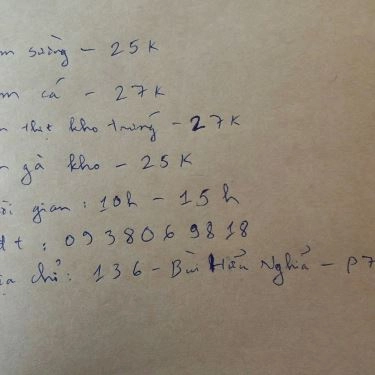 m sườn - 25K
m cá - 27K
m thịt kho trứng - 27K
n gà kho - 25K
ời gian : 10h - 15h
đt : 0938069818
ịa chỉ : 136 - Bùi Hữu Nghĩa - P7